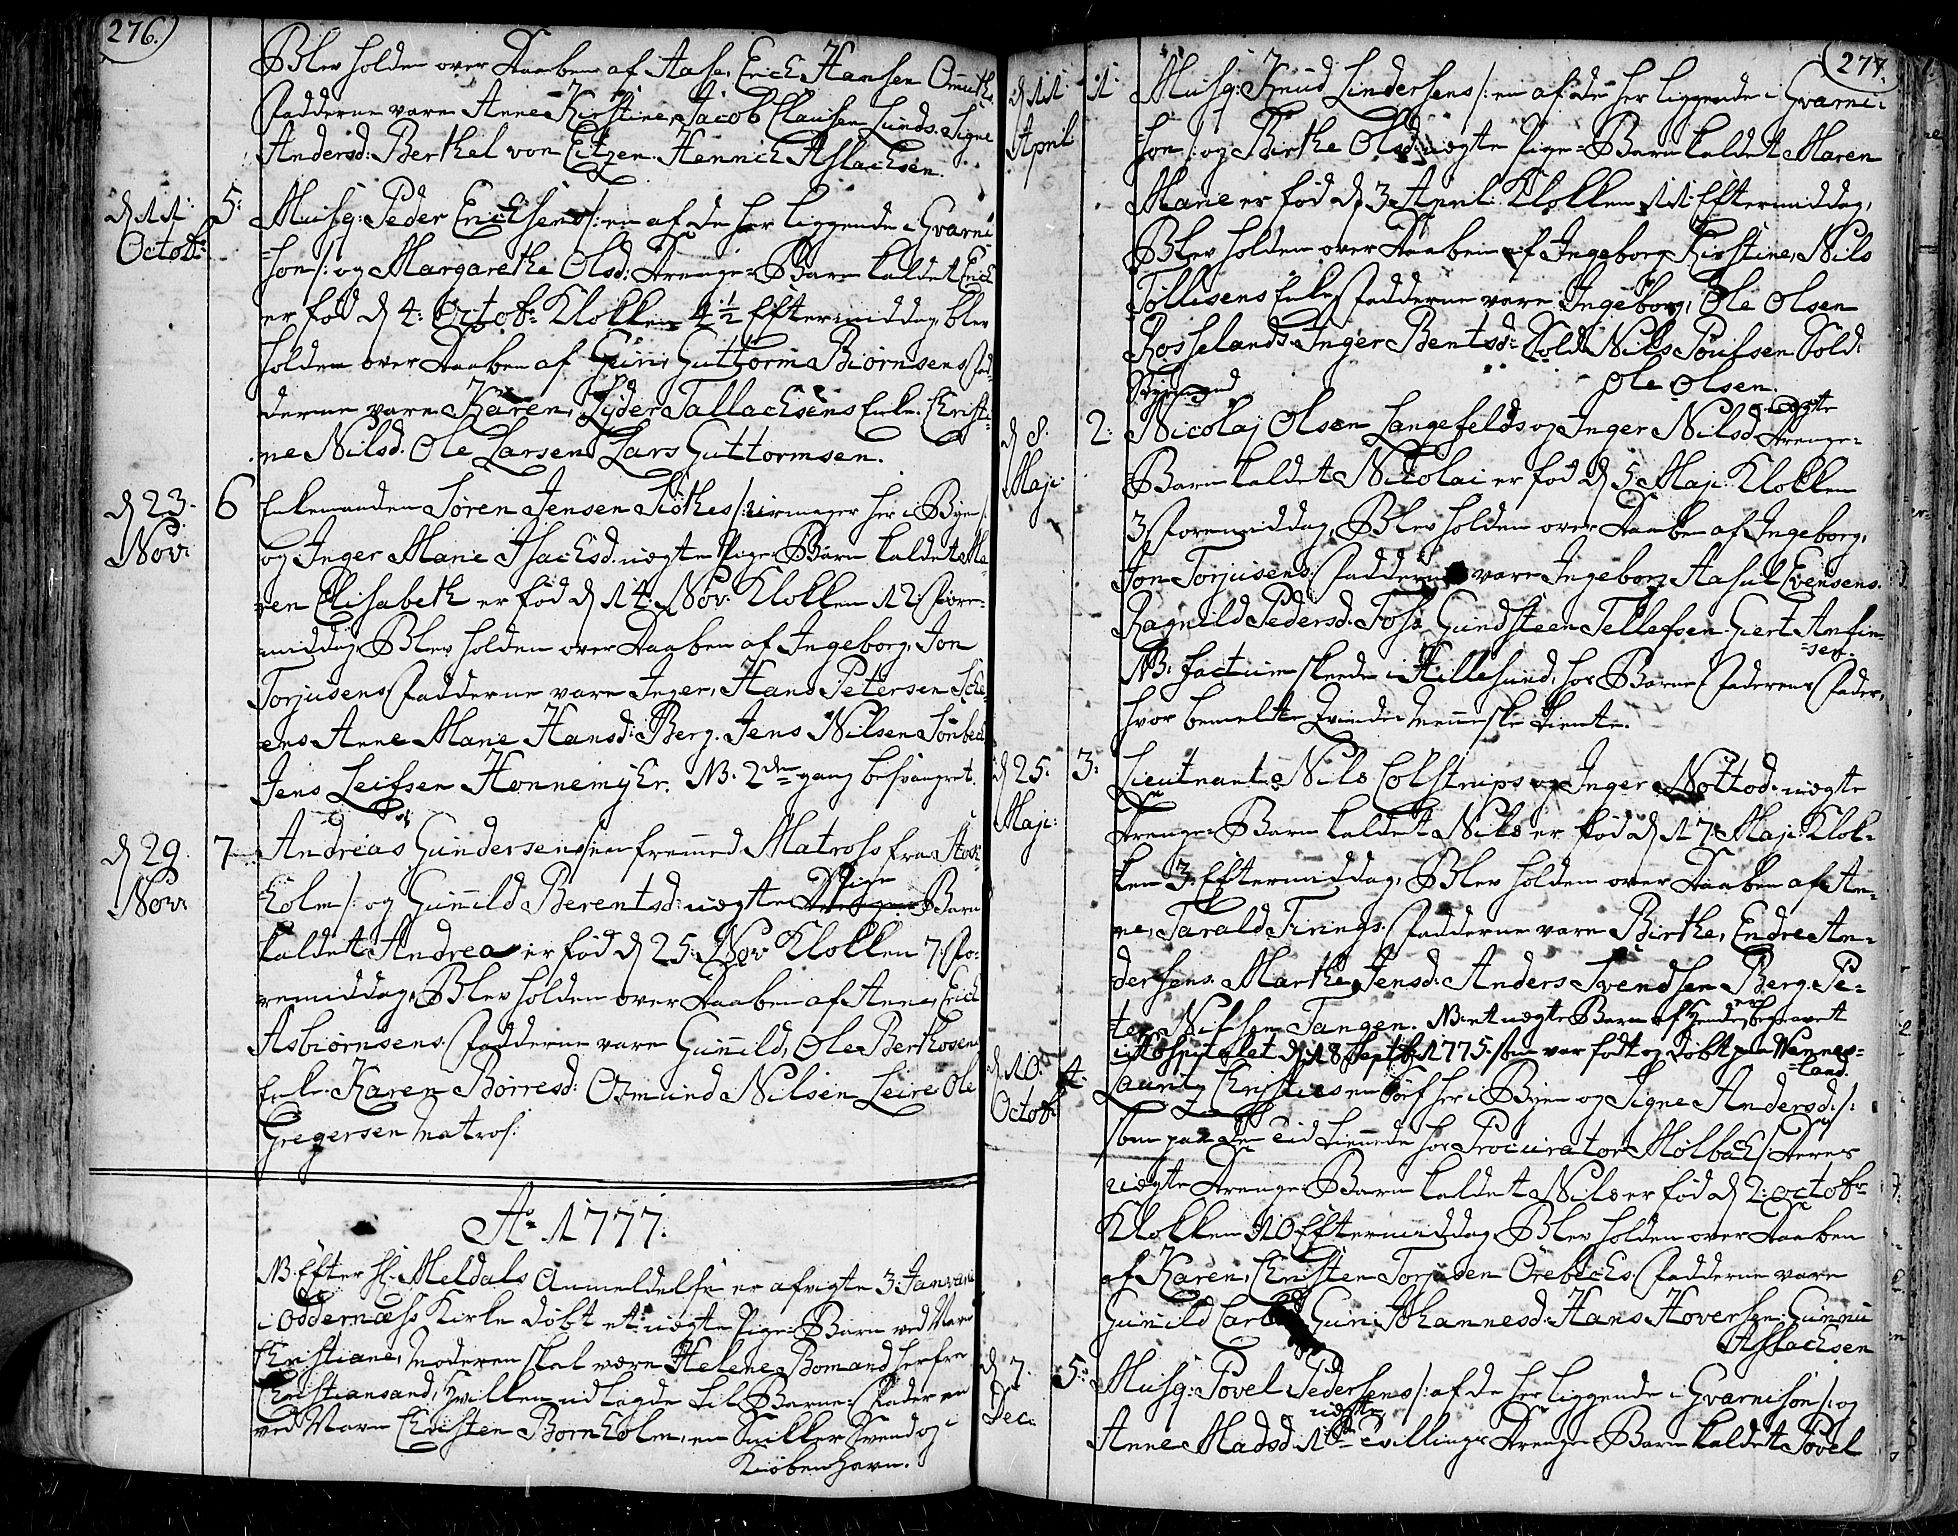 276.)
Blev holden over Daaben af Aase, Erich Hansen Omuth.
Fadderne vare Anne Kirstine, Jacob Clausen Lunds. Signe
Andersd: Berthel von Eitzen. Henrich Aslachsen.
d 11. Octob: 5. Musq: Peder Erichsens /: en af de her liggende i Gvarni-
=son :/ og Margarethe Olsd: Drenge=Barn kaldet Erich
er fød d 4: Octob: Klokken 4½ Eftermiddag, blev
holden over Daaben af Guttorm Biørnsens Fad-
derne vare Karen, Tallachsens Enke. Christi-
ne Nilsd. Ole Larsen Lars Guttormsen.
d 23. Nov: 6 Enkemanden Søren Jensen /: her i Byen :/
og Inger Marie Isachsd. uægte Pige=Barn kaldet Ma-
ren Elisabeth er fød d 14. Nov: Klokken 12 Fore-
middag, Blev holden over Daaben af Ingeborg, Jon
Torjusens Fadderne vare Inger, Hans Petersen
ens Anne Marie Hansd: Berg. Jens Nilsen
Jens Leifsen Honnemyhr. NB. 2den gang besvangret.
d 29. Nov: 7. Andreas Gundersens /: en fremmed Matross fra Stock-
holm :/ og Gunild Berentsd: uægte Pige Barn
kaldet Andrea er fød d 25: Nov: Klokken 7: Fo-
remiddag, Blev holden over Daaben af Anne, Erich
Asbiørnsens. Fadderne vare Gunild, Ole Berthosens
Enke. Karen Børresd: Osmund Nilsen Leire Ole
Gregersen Matros:
Ao 1777.
NB. Efter Hr: Meldals Anmeldelse er afvigte 3: Januarii
i Oddernæss Kirke døbt et uægte Pige=Barn ved Navn
Christiane, Moderen skal være Helene Bomand her fra
Christiansand, hvilken udlagde til Barne=Fader en
ved Navn Christen Bornholm, en Svend og i
Kiøbenhavn.
277.
d 11. April 1. Musq: Knud Lindersens /: en af de her liggende i Gvarni-
=son :/ og Birthe Olsd: uægte Pige=Barn kaldet Maren
Marie er fød d 3 April: Klokken 11: Eftermiddag,
Blev holden over Daaben af Ingeborg Kirstine, Nils
Tøllisens Enke, Fadderne vare Ingeborg, Ole Olsen
Rosselands. Inger Bentsd: Sold: Nils Poulsen Sold:
Ole Olsen.
d 8. Maji: 2: Nicolaj Olsen Langefelds og Inger Nilsd. uægte Drenge=
Barn kaldet Nicolai er fød d 5 Maji: Klokken
3 Foremiddag, Blev holden over Daaben af Ingeborg,
Jon Torjusens. Fadderne vare Ingeborg Aasul Evensens.
Ragnild Pedersd. Gundsteen Tellefsen. Giert Anfin-
=sen.
NB. factum skeede i Hillesund, hos Barne=Faderens Fader,
hvor bemeldte Qvinde Menneske tiente.
d 25: Maji: 3: Lieutnant Nils Colstrups og Inger uægte
Drenge=Barn kaldet Nils er fød d 17 Maji: Klok-
ken 3 Eftermiddag, Blev holden over Daaben af An-
ne, Tarald Frings. Fadderne vare Birthe, Endre An-
dersens. Marthe Jensd: Anders Svendsen Berg. Pe-
ter Nilsen Tangen. NB: et uægte Barn af hende er begravet
i Hospitalet d 18 Septbr: 1775. som var født og døbt paa Wennes-
=land.
d 10. Octob: 4. Lauritz Christiesen her i Byen og Signe Andersd: /:
som paa den tid tiennede hos Procurator Mølbach :/ Deres
uægte Drenge Barn kaldet Nils er fød d 2: octobr:
Klokken 10 Eftermiddag, Blev holden over Daaben
af Karen, Christen Torjusen Orebechs. Fadderne vare
Gunild Guri Johannesd. Hans Hoversen. Gunnu
Aslachsen
d 7. Dec: 5: Musq: Povel Pedersens /: af de her liggende i Gvarnison :/ og
Anne Madsd. uægte Tvillings Drenge Barn kaldet Povel